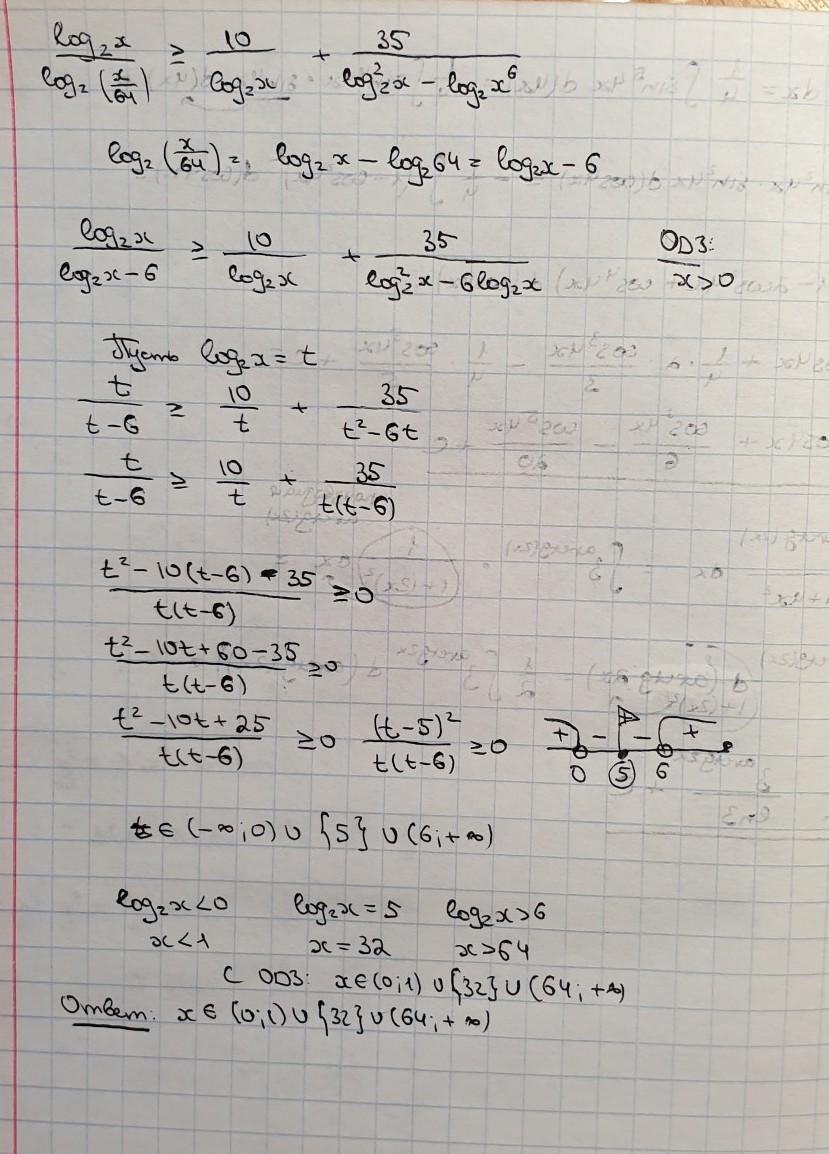 log₂x / log₂(x/64) ≥ 10 / log₂x + 35 / (log₂²x − log₂x⁶)
log₂(x/64) = log₂x − log₂64 = log₂x − 6
log₂x / (log₂x − 6) ≥ 10 / log₂x + 35 / (log₂²x − 6log₂x) ОДЗ:
x>0
Пусть log₂x = t
t / (t−6) ≥ 10 / t + 35 / (t² − 6t)
t / (t−6) ≥ 10 / t + 35 / (t(t−6))
(t² − 10(t−6) − 35) / (t(t−6)) ≥ 0
(t² − 10t + 60 − 35) / (t(t−6)) ≥ 0
(t² − 10t + 25) / (t(t−6)) ≥ 0 (t−5)² / (t(t−6)) ≥ 0 + − − +
0 5 6
t ∈ (−∞;0) ∪ {5} ∪ (6;+∞)
log₂x<0 log₂x = 5 log₂x>6
x<1 x = 32 x>64
С ОДЗ: x∈(0;1) ∪ {32} ∪ (64;+∞)
Ответ: x ∈ (0;1) ∪ {32} ∪ (64;+∞)